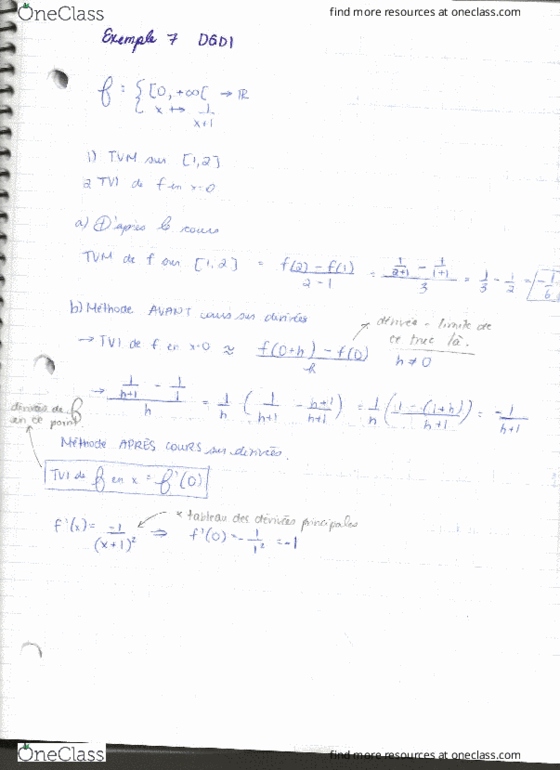 OneClass
find more resources at oneclass.com
Exemple 7 DGD1
f : { [0, +∞[ → ℝ
x ↦ 1/(x+1)
1) TVM sur [1,2]
2 TVI de f en x=0
a) D'après le cours
TVM de f sur [1,2] = (f(2) - f(1))/(2-1) = (1/(2+1) - 1/(1+1))/3 = 1/3 - 1/2 = -1/6
b) Méthode AVANT cours sur dérivées
dérivée = limite de
ce truc là.
→ TVI de f en x=0 ≈ (f(0+h) - f(0))/h h≠0
→ (1/(h+1) - 1/1)/h = 1/h (1/(h+1) - (h+1)/(h+1)) = 1/h ((1-(1+h))/(h+1)) = -1/(h+1)
dérivée de f
en ce point.
Méthode APRÈS COURS sur dérivées.
TVI de f en x = f'(0)
* tableau des dérivées principales
f'(x) = -1/(x+1)² ⇒ f'(0) = -1/1² = -1
OneClass
find more resources at oneclass.com